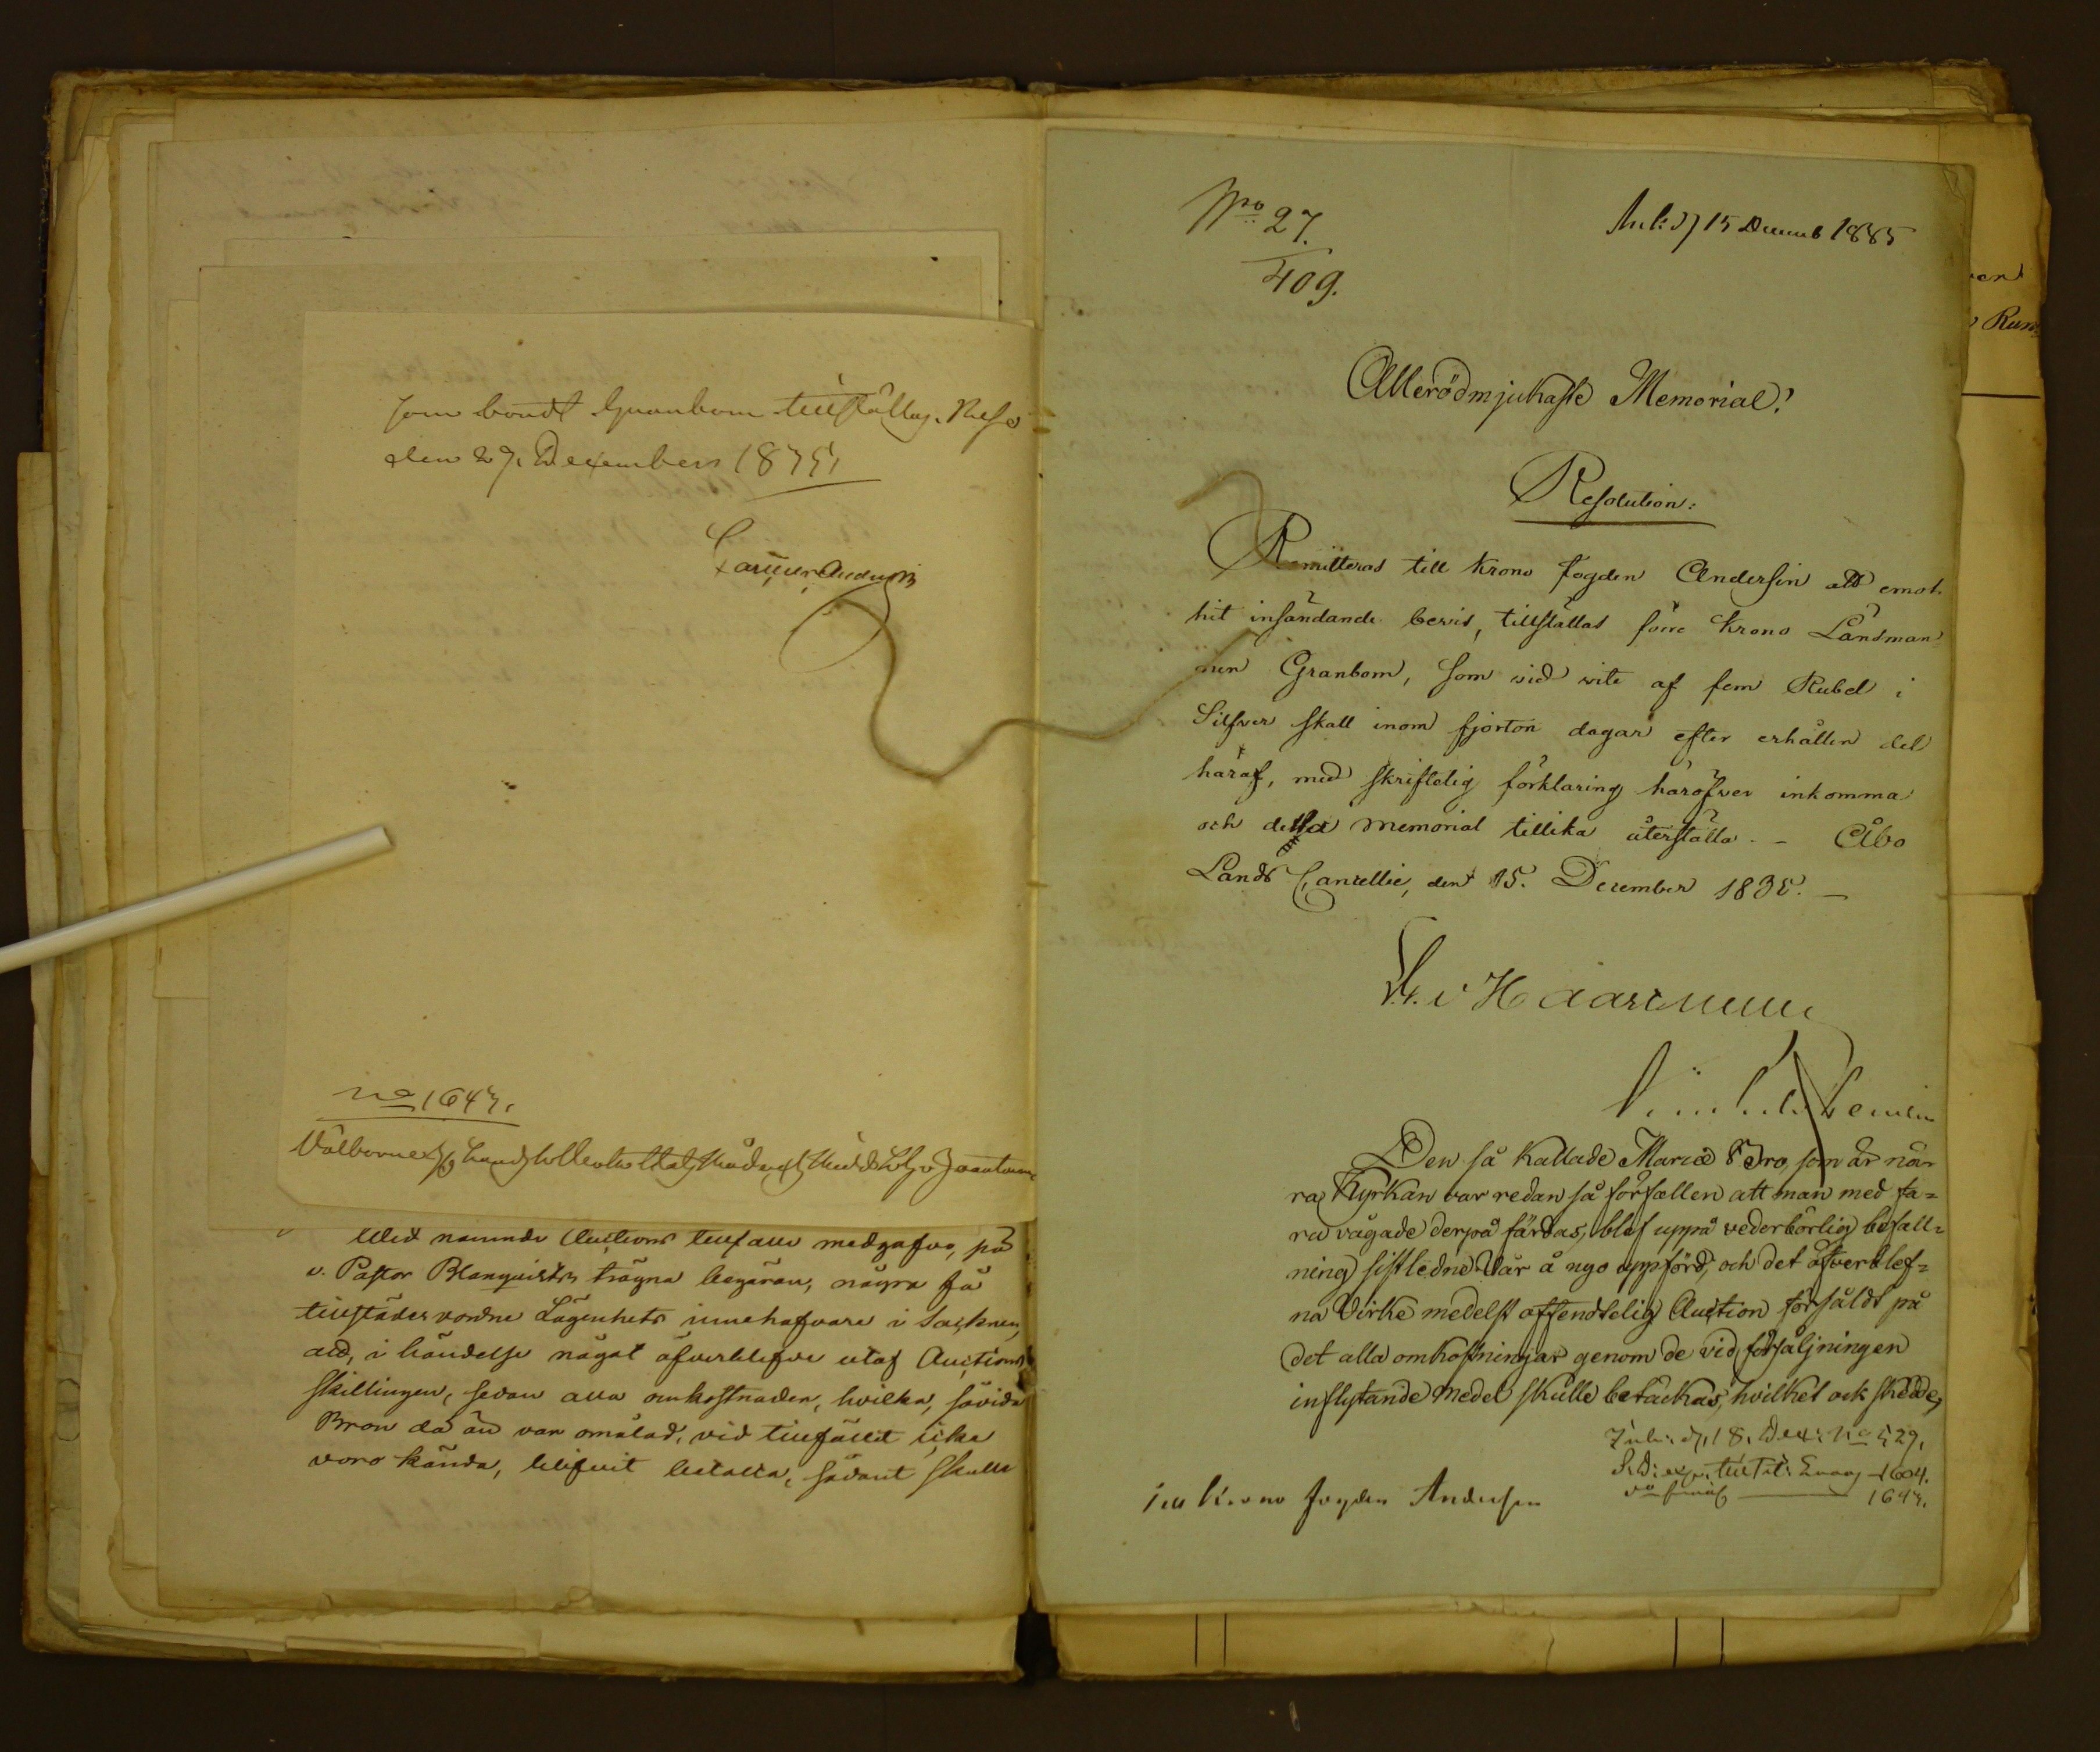 den 29 December 1835,
No 1647.
Wid nämnde Auctions tillfälle medgafvs, på
v. Pastor Blanquists trägna begäran, några få
tillstädes vordne Lägenhets innehafvare i Socknen,
att, i händelse något öfverblefve utaf Auctions
Skillingen, sedan alla omkostnader, hvilka, såvida
Bron då än var omålad, vid tillfället icke
voro kända, blifvit betalta, sådant skulle
No 27.
409.
Ank: d 15 Decemb 1835
Allerödmjukaste Memorial!
Resolution:
Remitteras till Krono Fogden Andersin att emot
hit insändande bevis, tillställas förre Krono Länsman
nen Granbom, som vid vite af fem Rubel i
Silfver skall inom fjorton dagar efter erhållen del
häraf, med skriftelig förklaring häröfver inkomma
och detta memorial tillika återställa. - Åbo
Lands Cancellie, den 15. December 1835. -
Haartman
Den så kallade Mariæ Bro, som är nä-
ra Kyrkan var redan så förfallen att man med fa=
ra vågade derpå färdas, blef uppå vederbörlig befall=
ning sistledne Vår å nyo uppförd, och det öfverblef=
na Virke medelst offendtelig Auction försåldt på
det alla omkostningar genom de vid försäljningen
inflytande medel skulle betäckas, hvilket ock skedde,
1604.
1647.
Till Krono Fogden Andersin